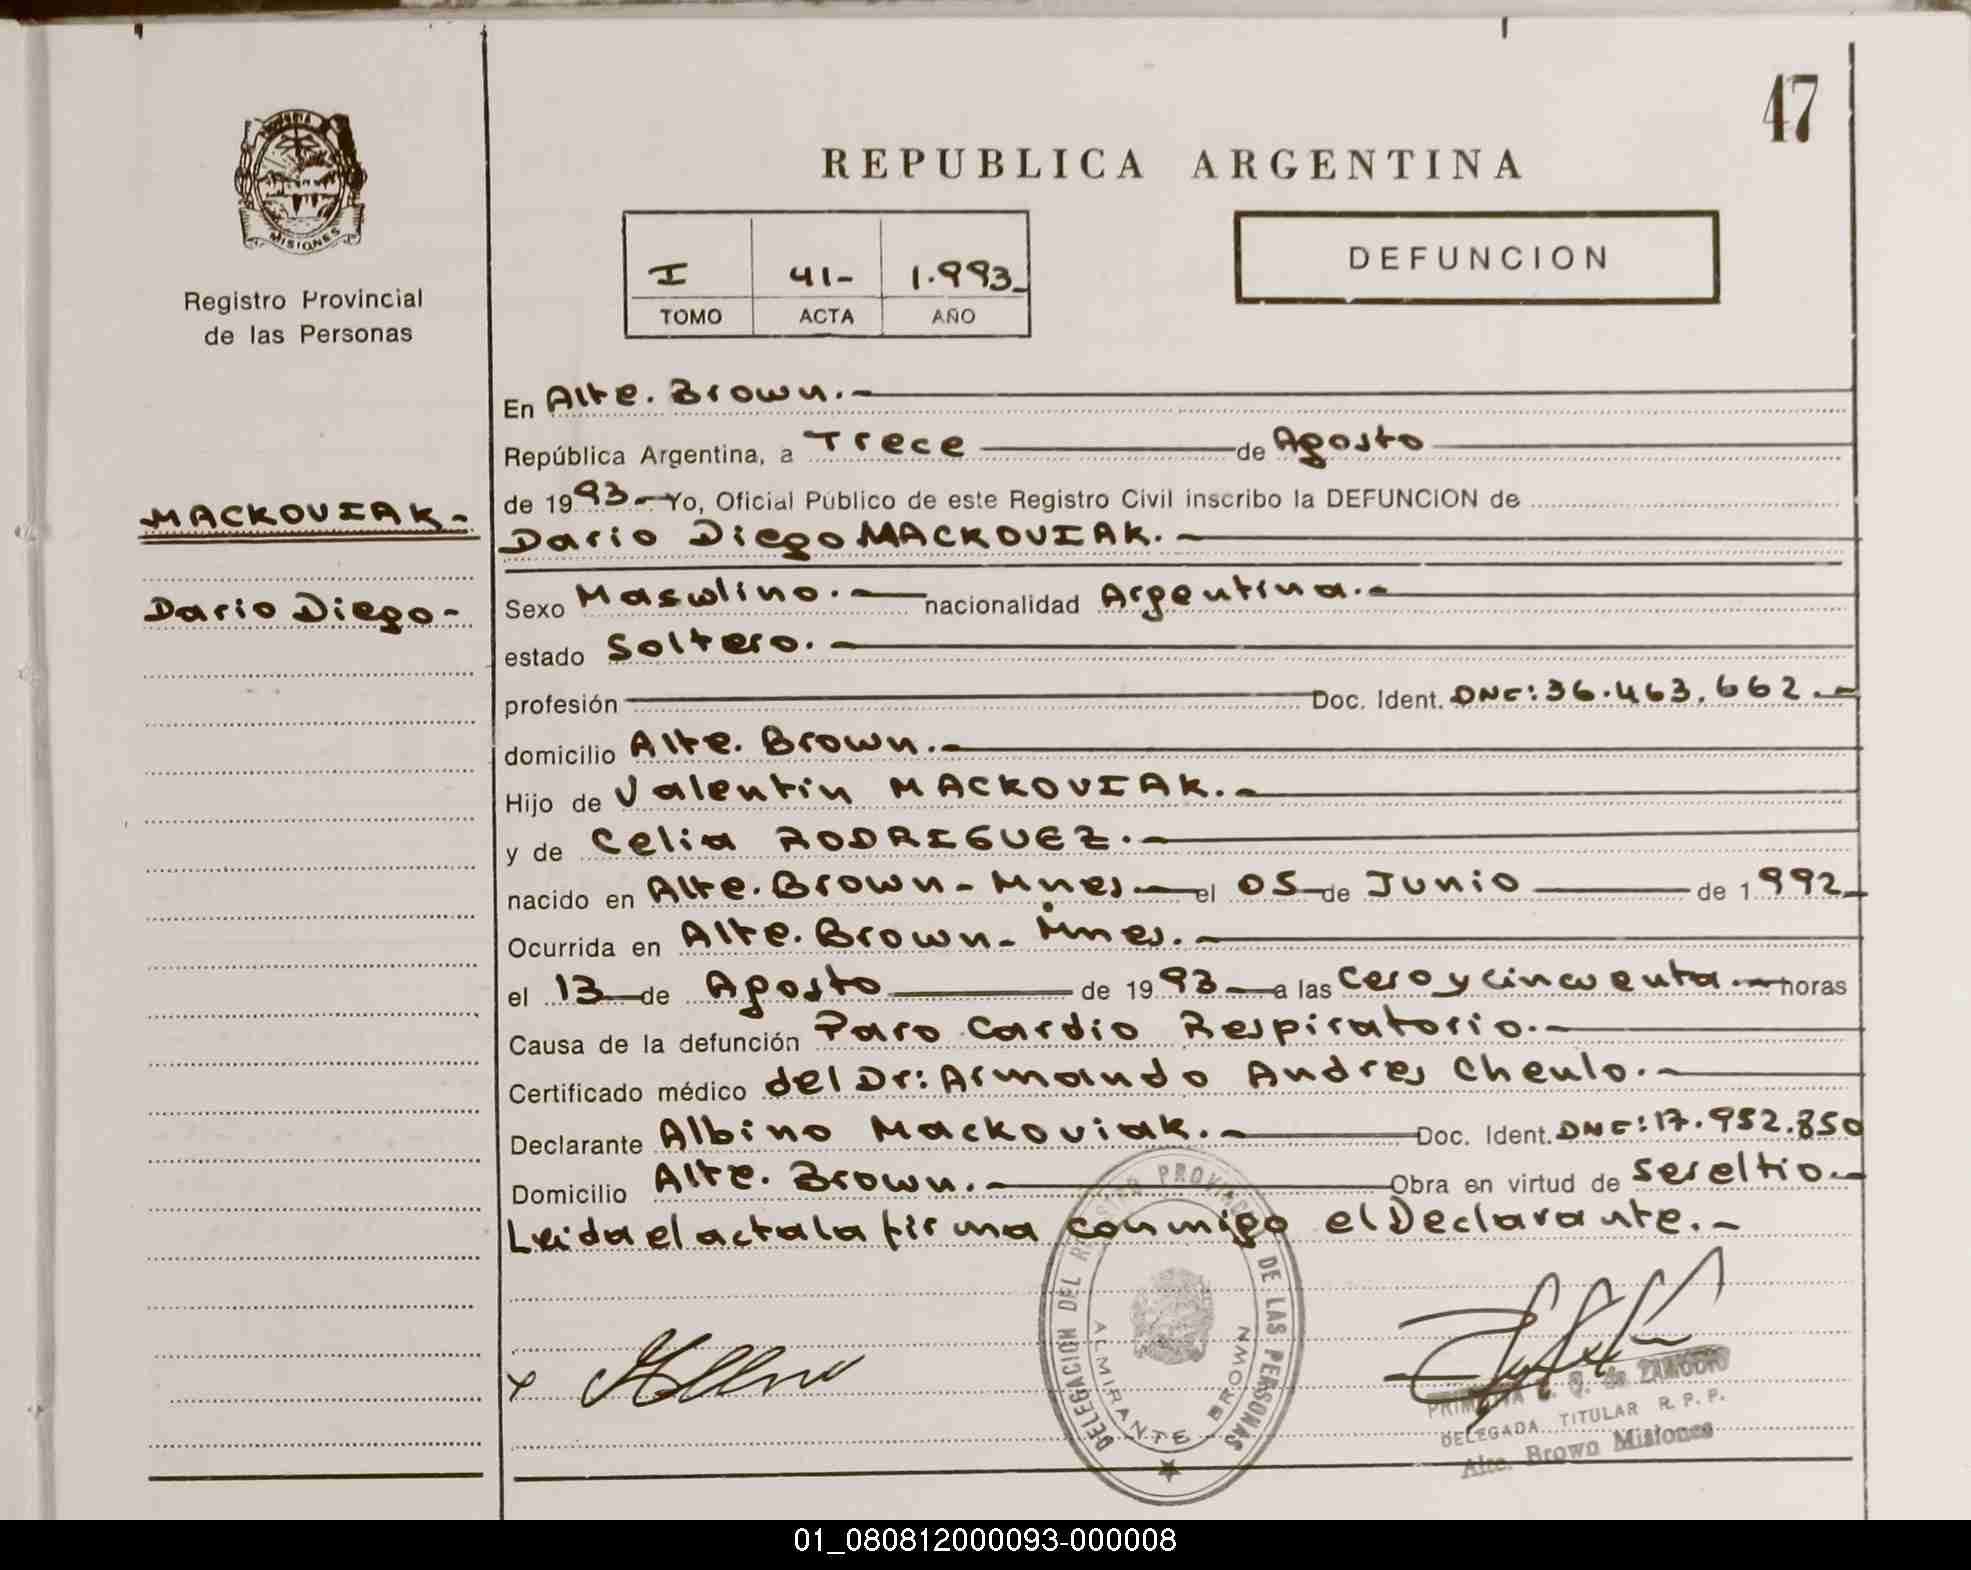 47
REPUBLICA ARGENTINA
MISIONES
Registro Provincial
de las Personas
I 41- 1.993_
TOMO ACTA AÑO
DEFUNCION
MACKOVIAK-
Dario Diego-
En Alte. Brown.-
República Argentina, a Trece de Agosto
de 1993- Yo, Oficial Público de este Registro Civil inscribo la DEFUNCION de
Dario Diego MACKOVIAK.-
Sexo Masculino.- nacionalidad Argentina.-
estado Soltero.-
profesión Doc. Ident. DNI: 36.463.662.-
domicilio Alte. Brown.-
Hijo de Valentin MACKOVIAK.-
y de Celia RODRIGUEZ.-
nacido en Alte. Brown-Mnes- el 05 de Junio de 1.992-
Ocurrida en Alte. Brown-Mnes.-
el 13 de Agosto de 1993- a las Cero y cincuenta.- horas
Causa de la defunción Paro Cardio Respiratorio.-
Certificado médico del Dr: Armando Andres Chenlo.-
Declarante Albino Mackoviak.- Doc. Ident. DNI: 17.952.850
Domicilio Alte. Brown.- Obra en virtud de ser el tio.-
Leida el acta la firma conmigo el Declarante.-
DELEGACION DEL REGISTRO PROVINCIAL DE LAS PERSONAS
ALMIRANTE BROWN
x
de ZAMUDIO
DELEGADA TITULAR R.P.P.
Alte. Brown Misiones
01_080812000093-000008